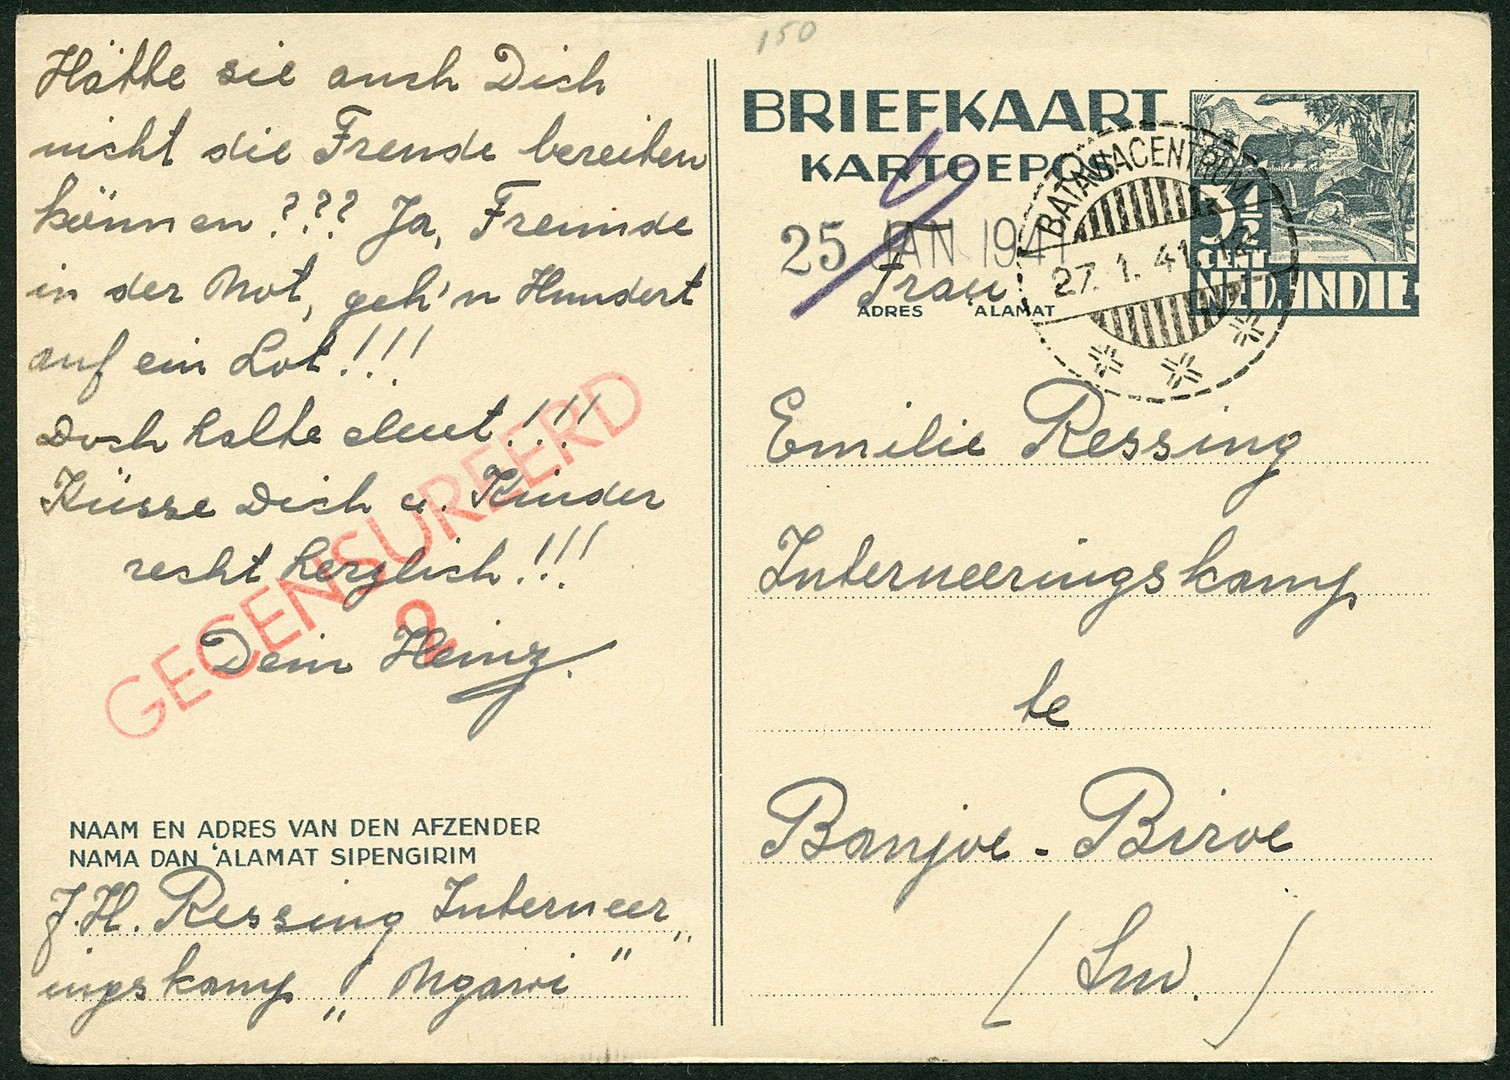 150
Hätte sie auch Dich
nicht die Freude bereiten
können ??? Ja, Freunde
in der Not, geh'n Hundert
auf ein Lot!!!
Doch halte Mut!!!
Küsse Dich u. Kinder
recht herzlich!!!
Dein Heinz.
GECENSUREERD
2
NAAM EN ADRES VAN DEN AFZENDER
NAMA DAN 'ALAMAT SIPENGIRIM
J. H. Ressing Interneer„
ingskamp „Ngawi"
BRIEFKAART
KARTOEPOS
25 JAN 1941
BATAVIACENTRUM
27.1.41.12
3½
CENT
NED. INDIE
Frau
ADRES 'ALAMAT
Emilie Ressing
Interneeringskamp
te
Banjoe-Biroe
(Smr.)